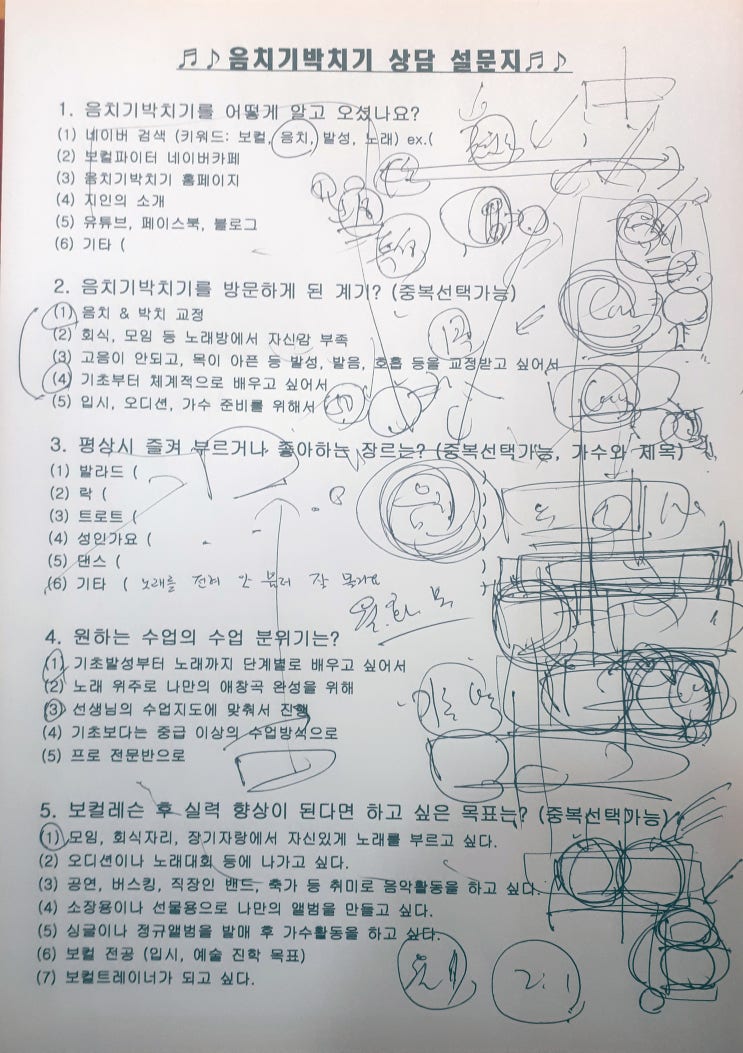 ♬♪음치기박치기 상담 설문지♬♪
1. 음치기박치기를 어떻게 알고 오셨나요?
(1) 네이버 검색 (키워드: 보컬, 음치, 발성, 노래) ex.( )
(2) 보컬파이터 네이버카페
(3) 음치기박치기 홈페이지
(4) 지인의 소개
(5) 유튜브, 페이스북, 블로그
(6) 기타 (
2. 음치기박치기를 방문하게 된 계기? (중복선택가능)
(1) 음치 & 박치 교정
(2) 회식, 모임 등 노래방에서 자신감 부족
(3) 고음이 안되고, 목이 아픈 등 발성, 발음, 호흡 등을 교정받고 싶어서
(4) 기초부터 체계적으로 배우고 싶어서
(5) 입시, 오디션, 가수 준비를 위해서
3. 평상시 즐겨 부르거나 좋아하는 장르는? (중복선택가능, 가수와 제목)
(1) 발라드 ( )
(2) 락 ( )
(3) 트로트 ( )
(4) 성인가요 ( )
(5) 댄스 ( )
(6) 기타 ( 노래를 전혀 안 불러 잘 )
4. 원하는 수업의 수업 분위기는?
(1) 기초발성부터 노래까지 단계별로 배우고 싶어서
(2) 노래 위주로 나만의 애창곡 완성을 위해
(3) 선생님의 수업지도에 맞춰서 진행
(4) 기초보다는 중급 이상의 수업방식으로
(5) 프로 전문반으로
5. 보컬레슨 후 실력 향상이 된다면 하고 싶은 목표는? (중복선택가능)
(1) 모임, 회식자리, 장기자랑에서 자신있게 노래를 부르고 싶다.
(2) 오디션이나 노래대회 등에 나가고 싶다.
(3) 공연, 버스킹, 직장인 밴드, 축가 등 취미로 음악활동을 하고 싶다.
(4) 소장용이나 선물용으로 나만의 앨범을 만들고 싶다.
(5) 싱글이나 정규앨범을 발매 후 가수활동을 하고 싶다.
(6) 보컬 전공 (입시, 예술 진학 목표)
(7) 보컬트레이너가 되고 싶다.
2:1